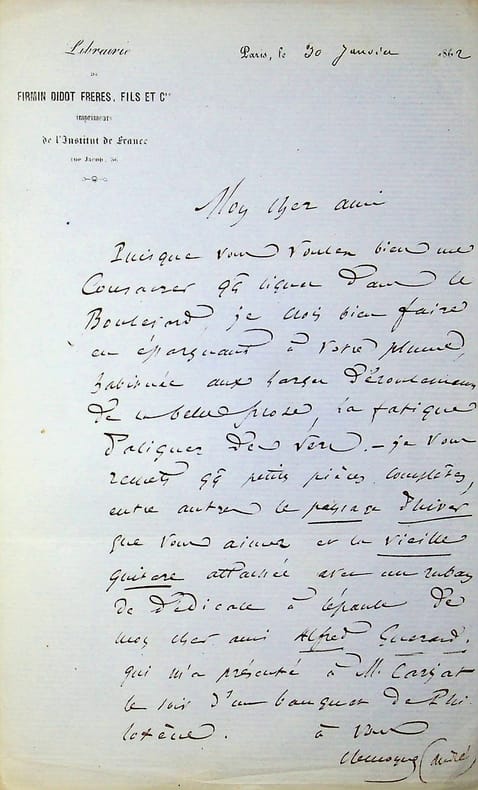 Librairie
DE
FIRMIN DIDOT FRERES, FILS ET Cie
imprimeurs
de l'Institut de France
rue Jacob, 56
Paris, le 30 Janvier 1862
Mon cher ami
Puisque vous voulez bien me
Consacrer qq lignes dans le
Boulevard, je crois bien faire
en épargnant à votre plume,
habituée aux larges déroulemens
de la belle prose, la fatigue
d'aligner des vers. – je vous
remets qq petits pièces complètes,
entre autres le paysage d'hiver
que vous aimez et la vieille
guitare attachée avec un ruban
de dédicace à l'épaule de
mon cher ami Alfred Guerard,
qui m'a présenté à M. Carjat
le soir d'un banquet de Phi
loxène. à vous
Lemoyne (andré)